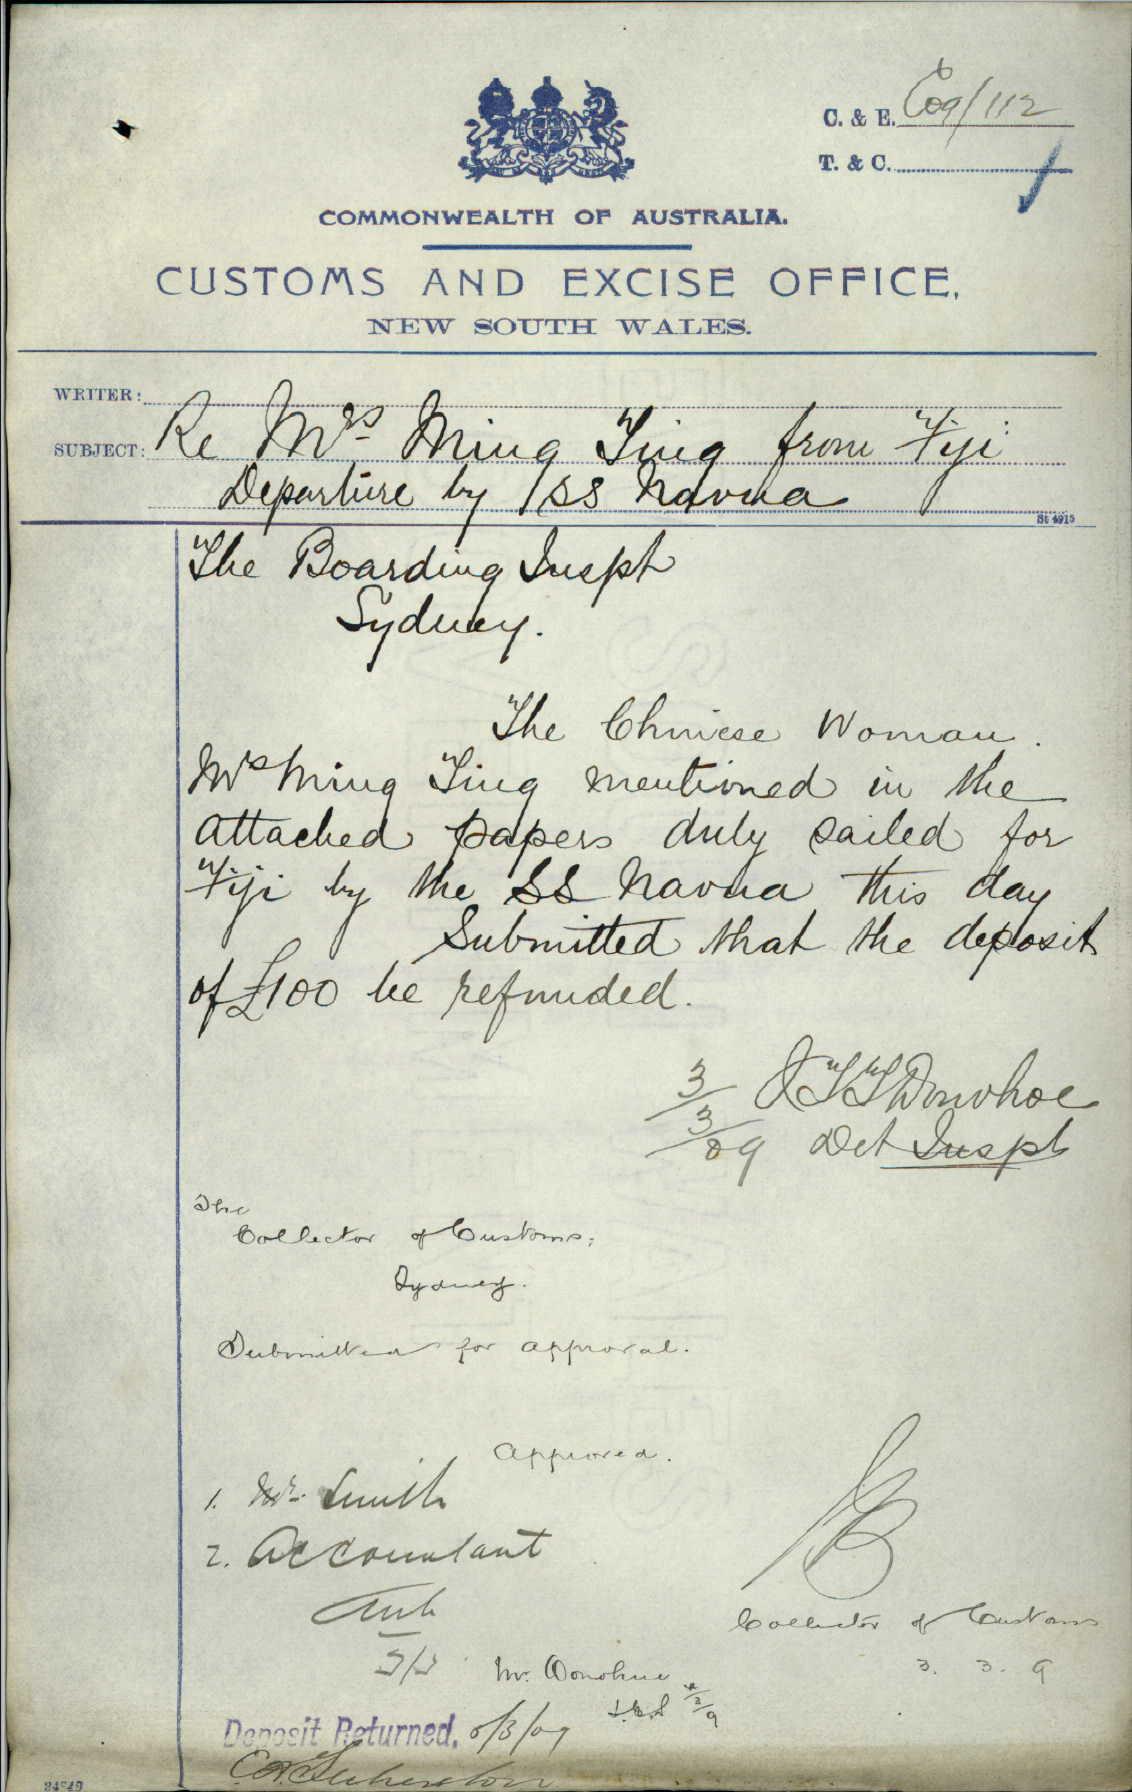 C. & E. C09/112
T. & C.
COMMONWEALTH OF AUSTRALIA.
CUSTOMS AND EXCISE OFFICE,
NEW SOUTH WALES.
WRITER:
SUBJECT: Re Mrs Ming Ting from Fiji
Departure by SS Navua
St 4915
The Boarding Inspt
Sydney.
The Chinese Woman.
Mrs Ming Ting mentioned in the
attached papers duly sailed for
Fiji by the SS Navua this day
Submitted that the deposit
of £100 be refunded.
3/3/09 J T T Donohoe
Det Inspt
The
Collector of Customs,
Sydney.
Submitted for approval.
Approved.
1. Mr. Smith
2. Accountant
Collector of Customs
3. 3. 9
3/3
Mr. Donohue
Deposit Returned. 5/3/09